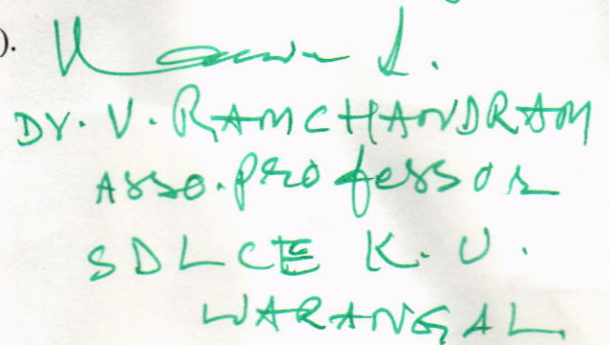 ).
Dr. V. RAMCHANDRAM
ASSO. Professor
SDLCE K.U.
WARANGAL